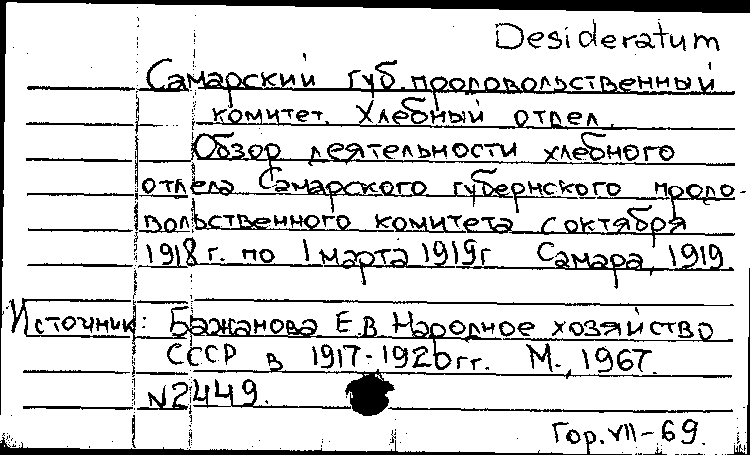 Desideratum
Самарский губ. продовольственный
комитет. Хлебный отдел.
Обзор деятельности хлебного
отдела Самарского губернского продо-
вольственного комитета с октября
1918 г. по 1 марта 1919 г Самара, 1919
Источник: Бажанова Е.В Народное хозяйство
СССР в 1917-1920 гг. М., 1967.
N2449.
Гор. VII-69.